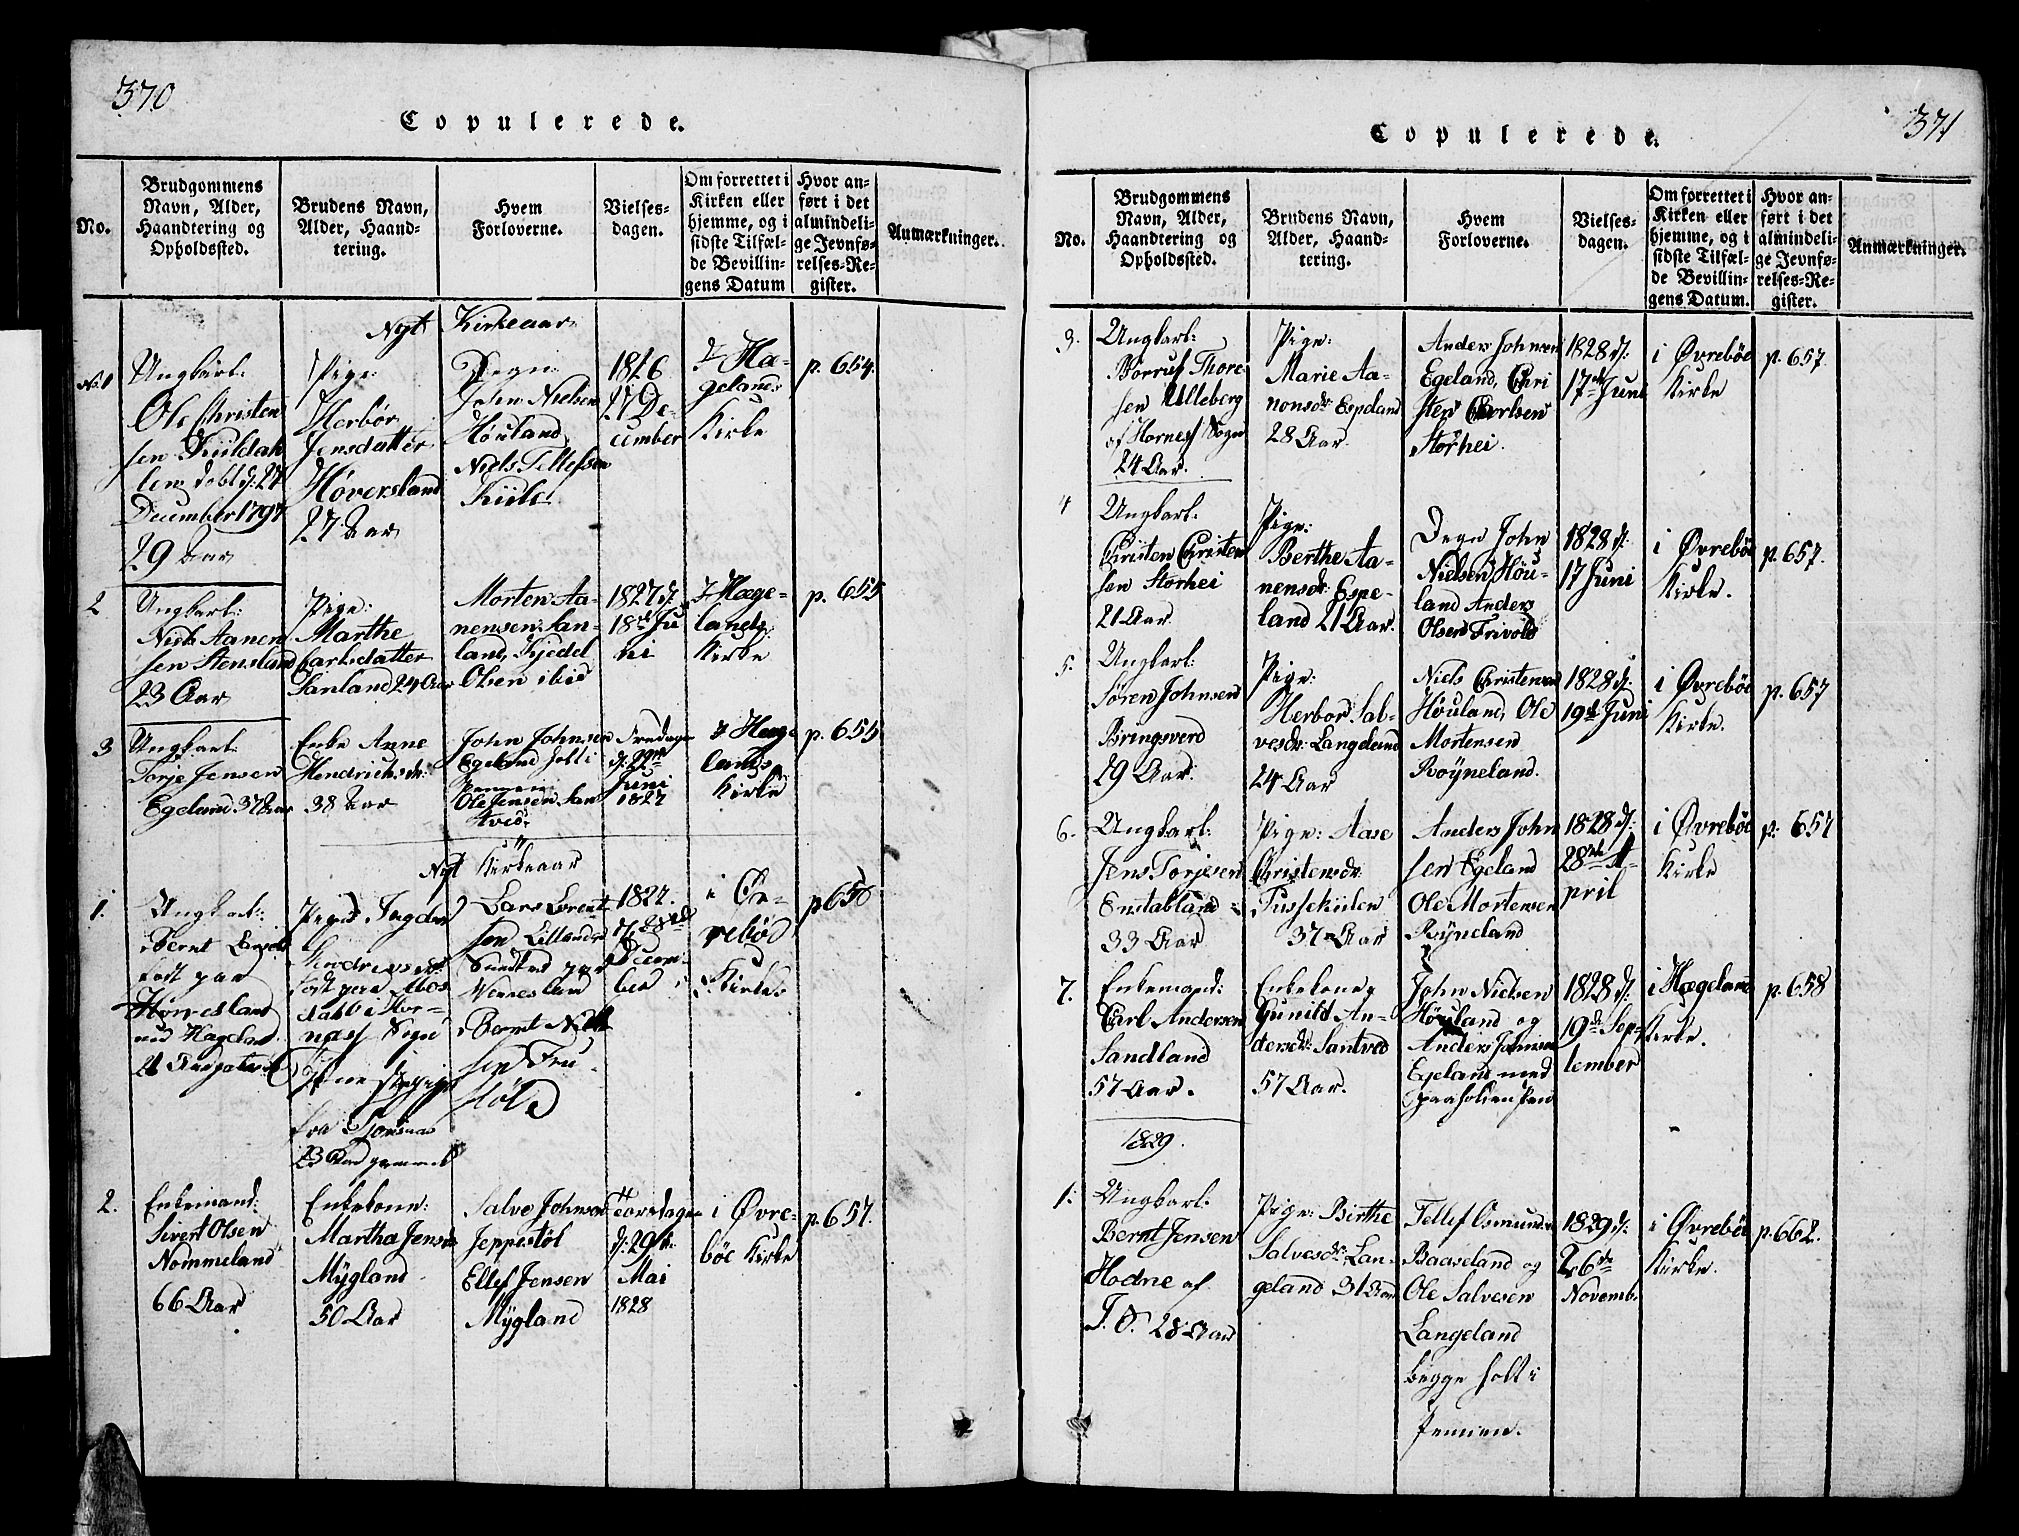 370
Copulerede.
No.
Brudgommens
Navn, Alder,
Haandtering og
Opholdssted.
Brudens Navn,
Alder, Haand-
tering.
Hvem
Forloverne.
Vielses-
dagen.
Om forrettet i
Kirken eller
hjemme, og i
sidste Tilfæl-
de Bevillin-
gens Datum
Hvor an-
ført i det
almindeli-
ge Jevnfø-
relses-Re-
gister.
Anmærkninger.
Nyt Kirkeaar
No. 1
Ungkarl:
Ole Christen
sen Kuildah
len døbt d: 27
December 1797
29 Aar
Pige:
Herbor
Jensdatter
Høversland
27 Aar
Degn
John Nielsen
Høuland
Niels Tellefsen
Kiile
1826
27 De-
cember
i Hæ-
gelands
Kirke
p. 654
2
Ungkarl:
Niels Aanen
sen Stensland
23 Aar
Pige:
Marthe
Carlsdatter
Sanland 24 Aar
Morten Aa-
nensen San-
land, Kjedel
Olsen ibid
1827 d.
18de Ju
ni
i Hæge-
lands
Kirke
p. 655
3
Ungkarl:
Torje Jensen
Egeland 37 Aar
Enke Anne
Hendrichsdr:
38 Aar
John Johnsen
Egeland holt i
Ole Jensen San
tved
Fredagen
d: 22de
Juni
1827
i Hæge
lands
Kirke
p. 655
Nyt Kirkeaar
1.
Ungkarl:
Bernt
født paa
Pige Ingebor
født paa
nass Sogn
fra
23 Aar gammel
Lars Lorent
sen
Bernt Niel
sen
1827.
d. 28de
Decem
ber
i Øv-
rebøe
Kirke
p 656
2.
Enkemand:
Sivert Olsen
Nommeland
66 Aar
Enkekone:
Martha Jensdr
Mygland
50 Aar
Salve Johnsen
Jeppestøl
Ellef Jensen
Mygland
Torsdagen
d: 29de
Mai
1828
i Øvre-
bøe Kirke
p. 657.
371
Copulerede.
No.
Brudgommens
Navn, Alder,
Haandtering og
Opholdssted.
Brudens Navn,
Alder, Haand-
tering.
Hvem
Forloverne.
Vielses-
dagen.
Om forrettet i
Kirken eller
hjemme, og i
sidste Tilfæl-
de Bevillin-
gens Datum.
Hvor an-
ført i det
almindeli-
ge Jevnfø-
relses-Re-
gister.
Anmærkninger.
3.
Ungkarl:
Borruf Thore
sen Ulleberg
af Hornes Sogn
24 Aar.
Pige:
Marie Aa-
nonsdr Espeland
28 Aar.
Anders Johnsen
Egeland, Chri
sten Carlsen
Storhei.
1828 d:
17de Juni
i Øvrebøe
Kirke
p. 657.
4
Ungkarl:
Christen Christen
sen Storhei
21 Aar.
Pige:
Berthe Aa-
nensdr: Espe-
land 21 Aar.
Degn John
Nielsen Høu-
land Anders
Olsen Frivold
1828 d.
17 Juni
i Øvrebøe
Kirke.
p. 657.
5.
Ungkarl:
Søren Johnsen
Bringsverd
29 Aar.
Pige:
Herbor Sal-
vesdr: Langeland
24 Aar
Niels Christensen
Høuland, Ole
Mortensen
Røyneland.
1828 d.
19de Juni
i Øvrebøe
Kirke.
p. 657
6.
Ungkarl:
Jens Torjesen
Emtabland
33 Aar
Pige: Aase
Christensdr
Fusskiilen
37 Aar
Anders John
sen Egeland
Ole Mortensen
Røyneland
1828 d:
28de A-
pril
i Øvrebøe
Kirke
p. 657
7.
Enkemand:
Carl Andersen
Sandland
57 Aar.
Enkekone
Gunild An-
dersdr: Santved
57 Aar.
John Nielsen
Høuland og
Anders Johnsen
Egeland med
paaholden Pen
1828 d:
19de Sep-
tember
i Hægeland
Kirke.
p. 658
1829.
1.
Ungkarl:
Bernt Jensen
Hodne af
28 Aar
Pige: Birthe
Salvesdr: Lan-
geland 31 Aar
Tellef Osmunds.
Baaseland og
Ole Salvesen
Langeland
begge holt i
Pennen.
1829 d:
26de
Novemb.
i Øvrebøe
Kirke.
p. 662.